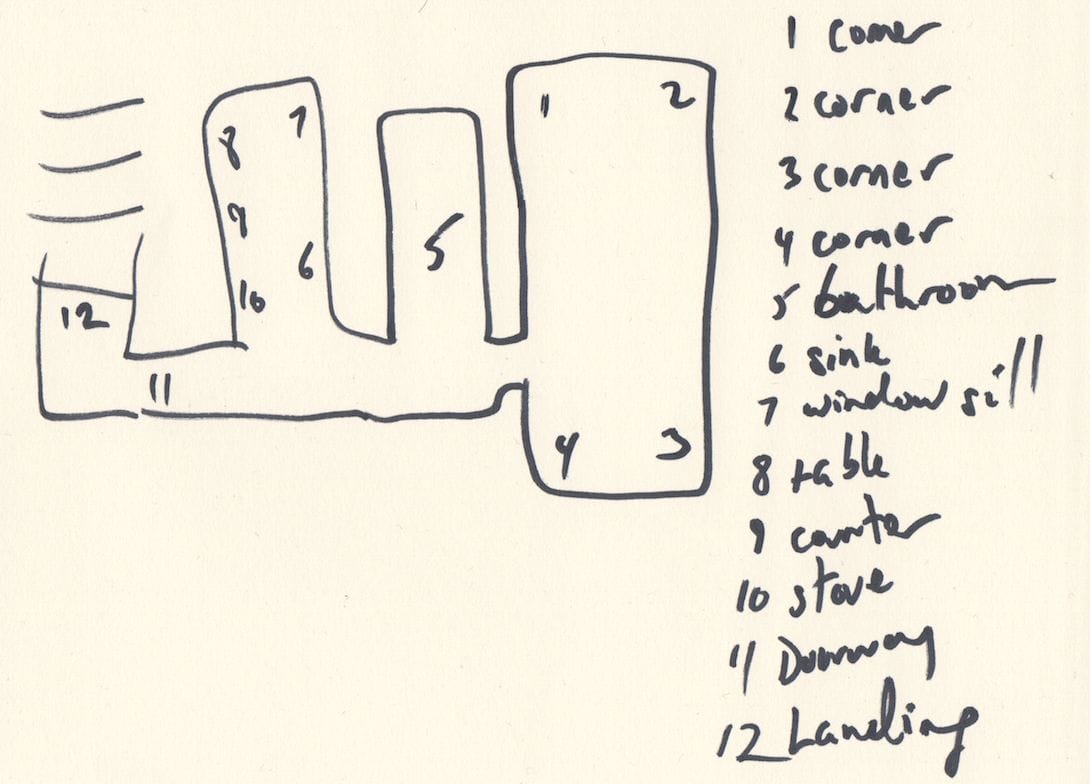 1 corner
2 corner
3 corner
4 corner
5 bathroom
6 sink
7 window sill
8 table
9 counter
10 stove
11 Doorway
12 Landing
1
2
7
8
9
6
5
10
12
11
4
3